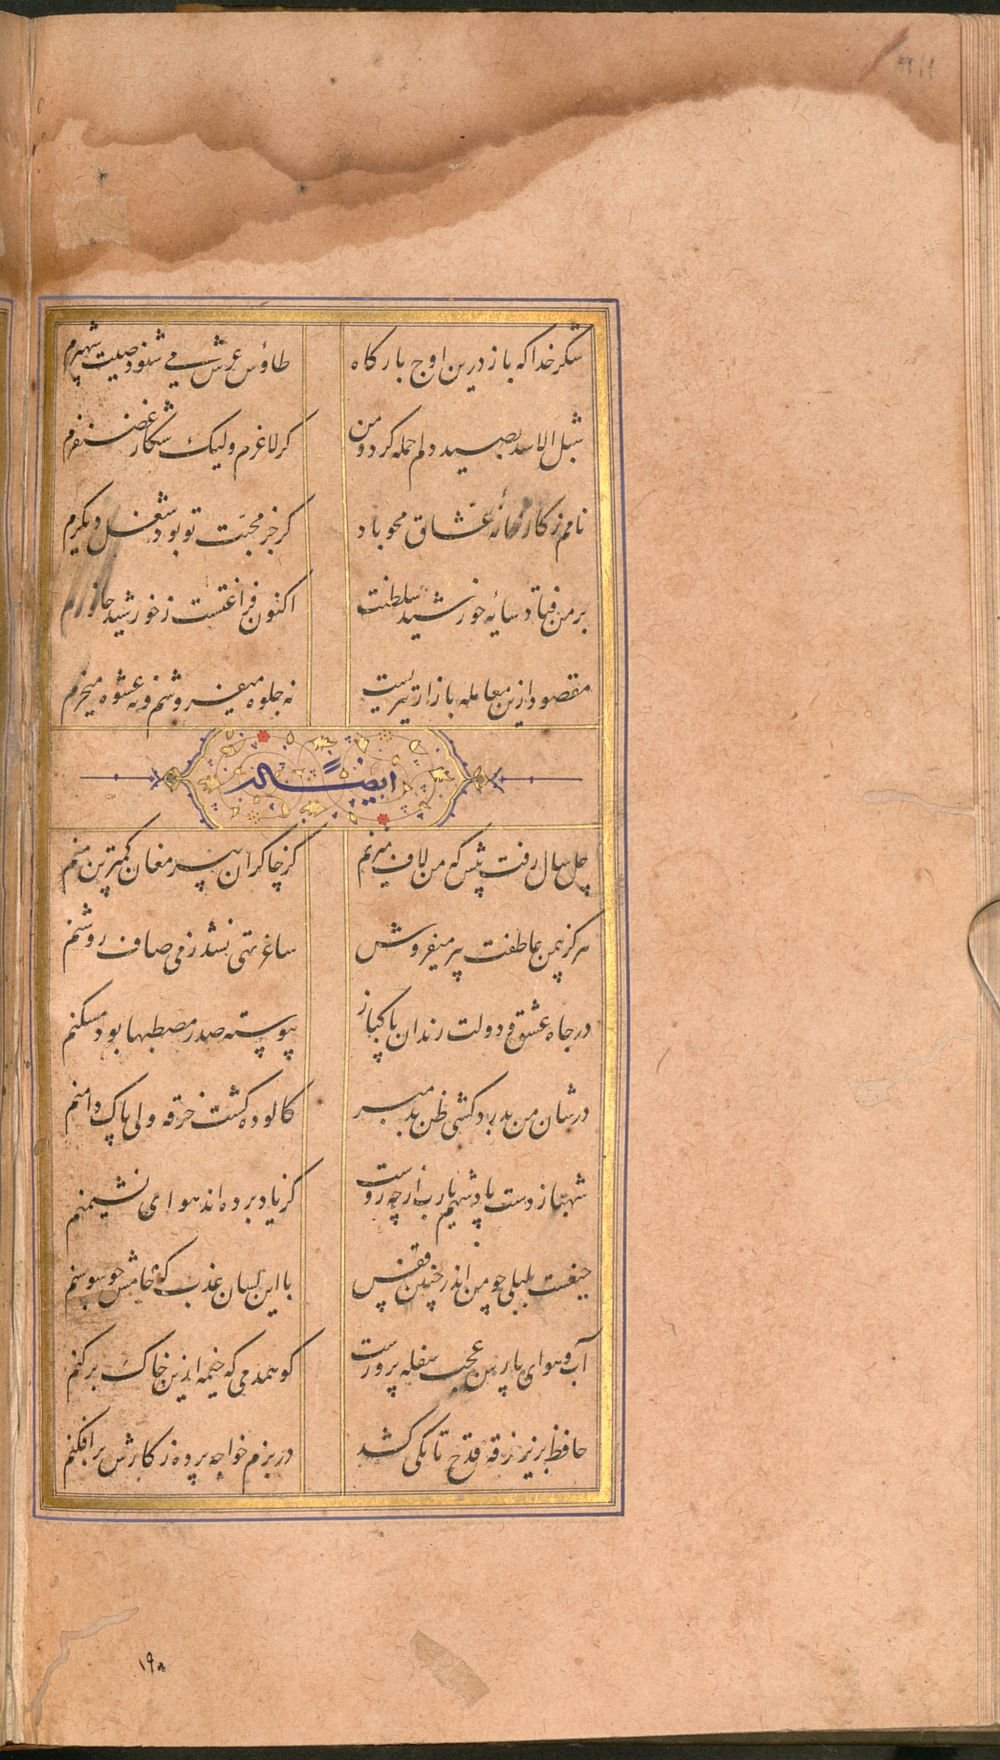 شکر خدا که باز درین اوج بارگاه
طاؤس عرش می شنود صیت شهپرم
شبل الاسد بصید دلم حمله کرد و من
گر لاغرم ولیک شکار غضنفرم
نامم ز کارخانهٔ عشاق محو باد
گر جز محبت تو بود شغل دیگرم
بر من فتاد سایه خورشید سلطنت
اکنون فراغتست ز خورشید خاورم
مقصود ازین معامله بازار تیزیست
نه جلوه میفروشم و نه عشوه میخرم
ایضًا له
چل سال رفت بیش که من لاف میزنم
کز چاکران پیر مغان کمترین منم
هرگز بیمن عاطفت پیر میفروش
ساغر تهی نشد ز می صاف روشنم
در جاه عشق و دولت رندان پاکباز
پیوسته صدر مصطبها بود مسکنم
در شان من بدرد کشی ظن بد مبر
کالوده گشت خرقه ولی پاک دامنم
شهباز دست پادشهم یارب از چه روست
کز یاد برده اند هوای نشیمنم
حیفست بلبلی چو من اندر چنین قفس
با این لسان عذب که خامش چو سوسنم
آب و هوای پارس عجب سفله پرورست
کو همدمی که خیمه ازین خاک برکنم
حافظ بزیر خرقه قدح تا بکی کشد
در بزم خواجه پرده ز کارش برافکنم